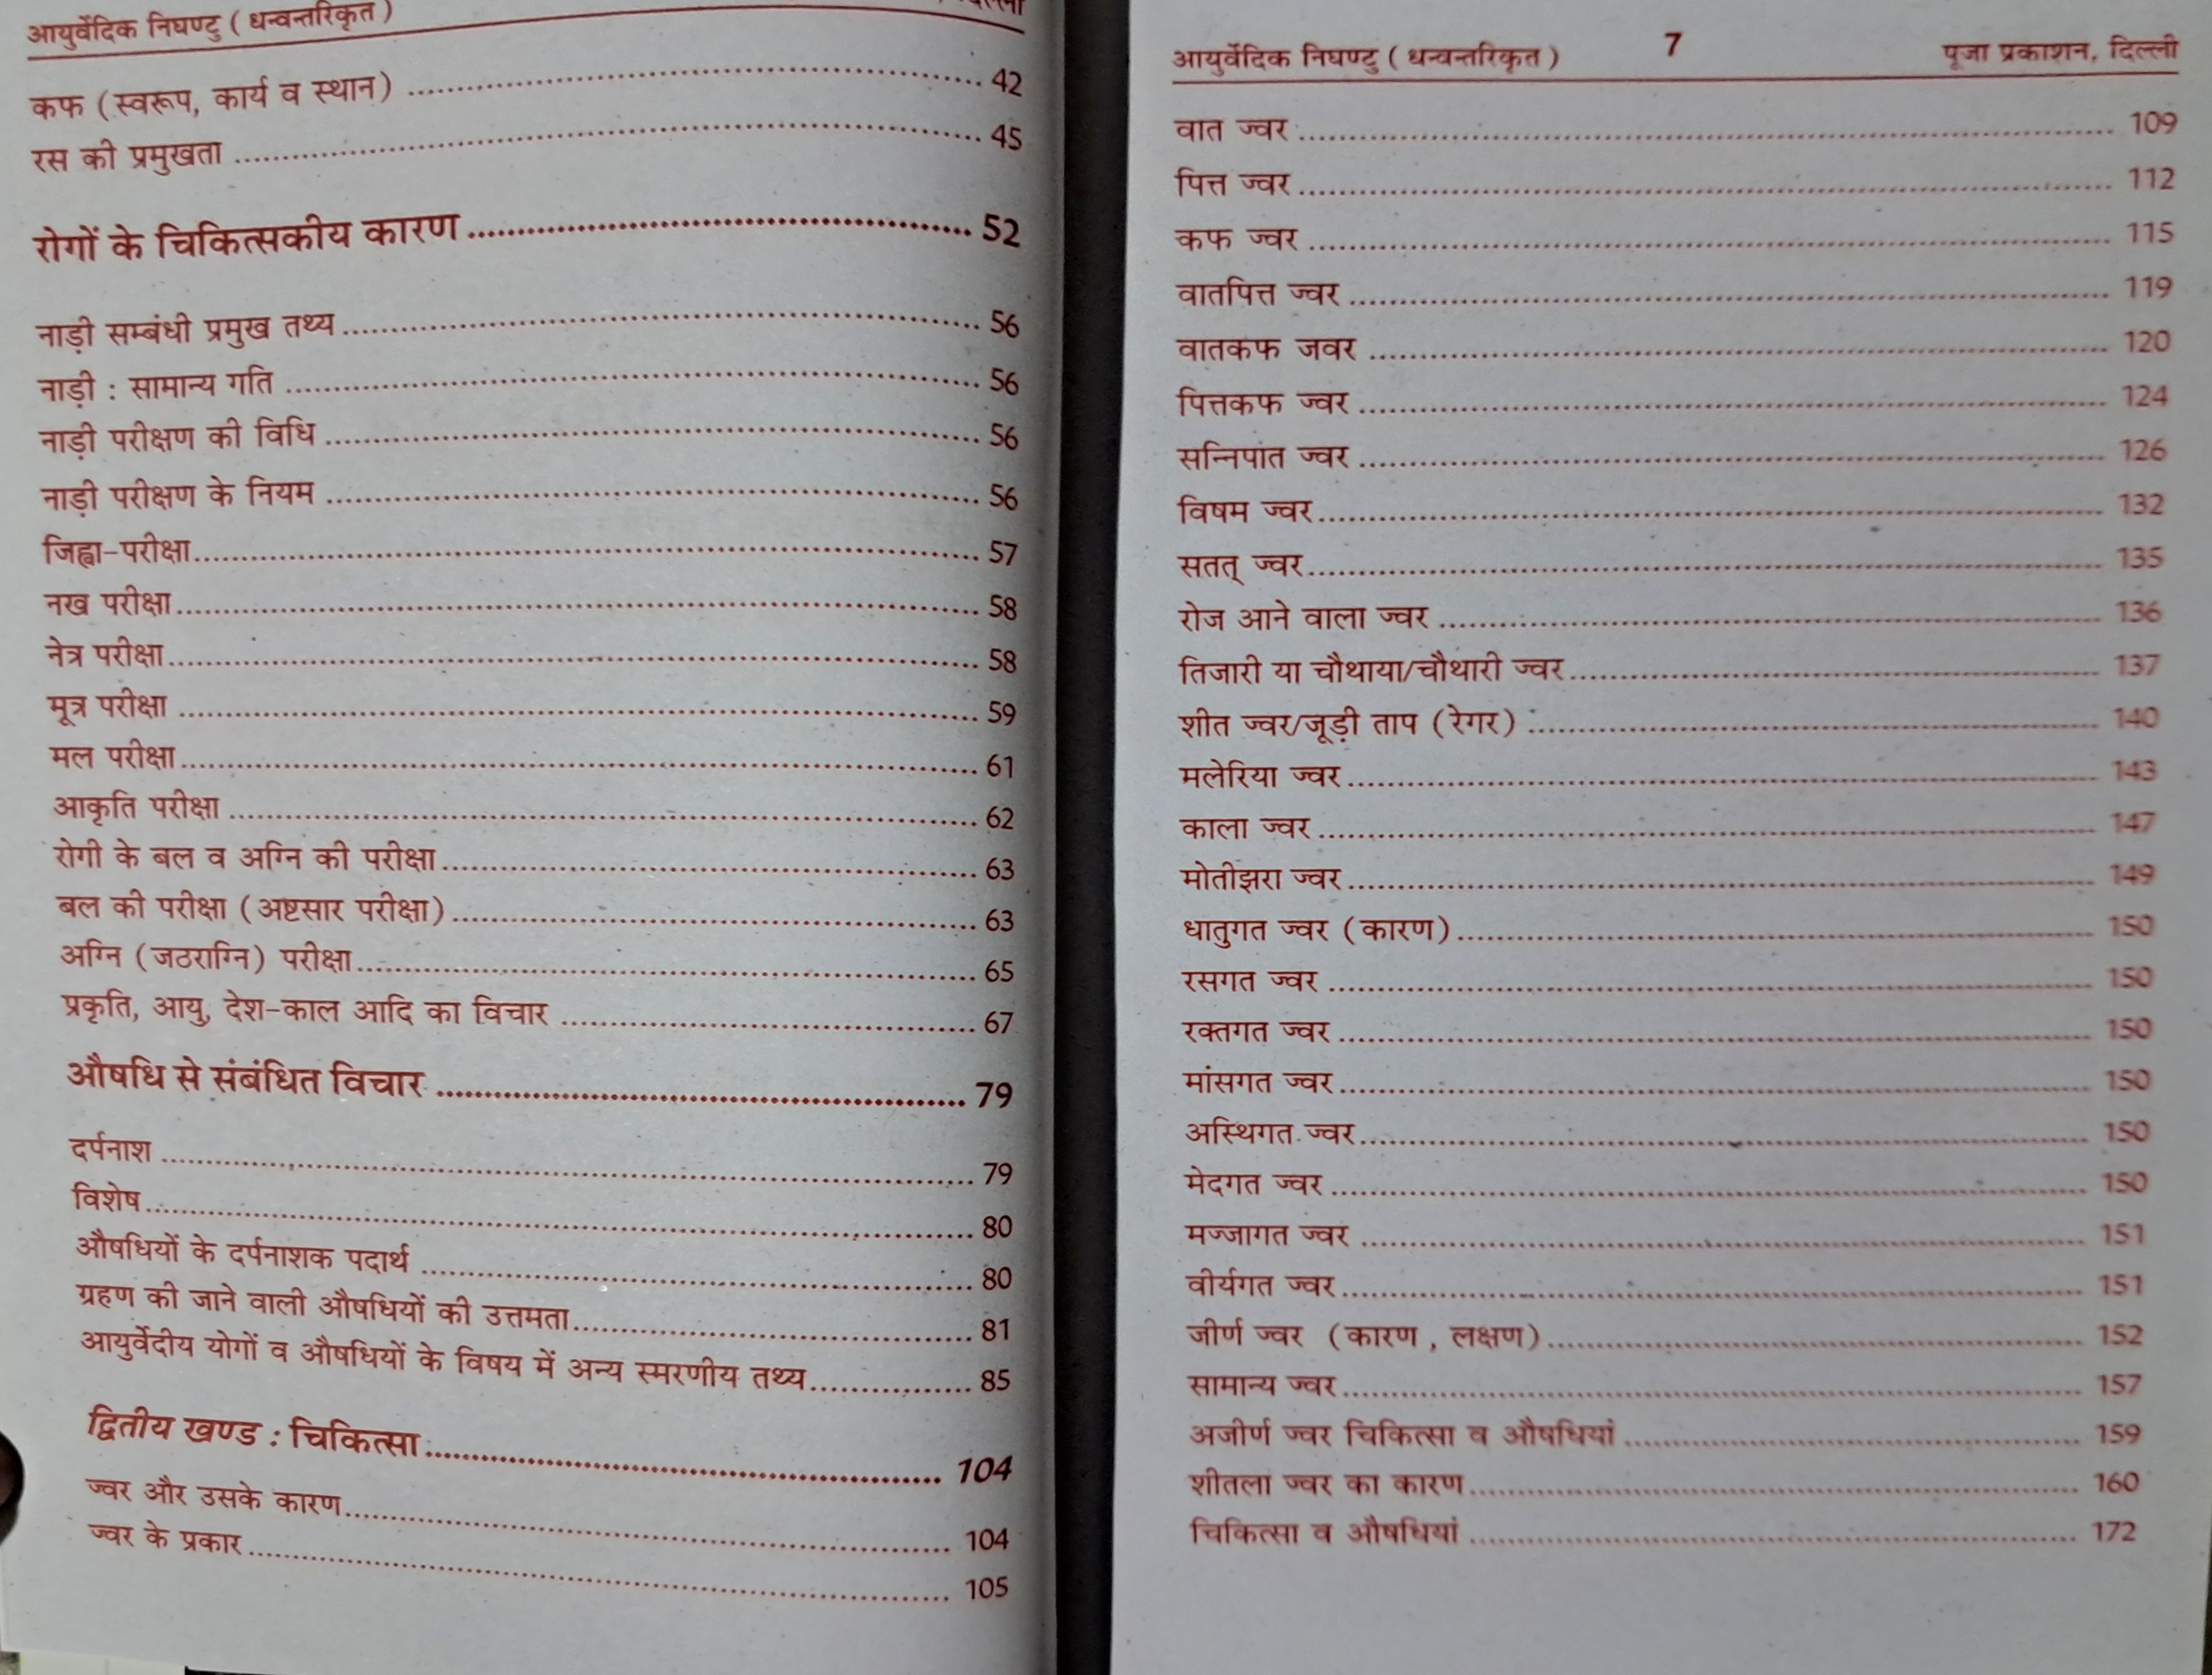 आयुर्वेदिक निघण्टु ( धन्वन्तरिकृत )
कफ (स्वरूप, कार्य व स्थान) ........ 42
रस की प्रमुखता ........ 45
रोगों के चिकित्सकीय कारण ........ 52
नाड़ी सम्बंधी प्रमुख तथ्य ........ 56
नाड़ी : सामान्य गति ........ 56
नाड़ी परीक्षण की विधि ........ 56
नाड़ी परीक्षण के नियम ........ 56
जिह्वा-परीक्षा ........ 57
नख परीक्षा ........ 58
नेत्र परीक्षा ........ 58
मूत्र परीक्षा ........ 59
मल परीक्षा ........ 61
आकृति परीक्षा ........ 62
रोगी के बल व अग्नि की परीक्षा ........ 63
बल की परीक्षा (अष्टसार परीक्षा) ........ 63
अग्नि (जठराग्नि) परीक्षा ........ 65
प्रकृति, आयु, देश-काल आदि का विचार ........ 67
औषधि से संबंधित विचार ........ 79
दर्पनाश ........ 79
विशेष ........ 80
औषधियों के दर्पनाशक पदार्थ ........ 80
ग्रहण की जाने वाली औषधियों की उत्तमता ........ 81
आयुर्वेदीय योगों व औषधियों के विषय में अन्य स्मरणीय तथ्य ........ 85
द्वितीय खण्ड : चिकित्सा ........ 104
ज्वर और उसके कारण ........ 104
ज्वर के प्रकार ........ 105
आयुर्वेदिक निघण्टु ( धन्वन्तरिकृत ) 7 पूजा प्रकाशन, दिल्ली
वात ज्वर ........ 109
पित्त ज्वर ........ 112
कफ ज्वर ........ 115
वातपित्त ज्वर ........ 119
वातकफ जवर ........ 120
पित्तकफ ज्वर ........ 124
सन्निपांत ज्वर ........ 126
विषम ज्वर ........ 132
सतत् ज्वर ........ 135
रोज आने वाला ज्वर ........ 136
तिजारी या चौथाया/चौथारी ज्वर ........ 137
शीत ज्वर/जूड़ी ताप (रेगर) ........ 140
मलेरिया ज्वर ........ 143
काला ज्वर ........ 147
मोतीझरा ज्वर ........ 149
धातुगत ज्वर (कारण) ........ 150
रसगत ज्वर ........ 150
रक्तगत ज्वर ........ 150
मांसगत ज्वर ........ 150
अस्थिगत ज्वर ........ 150
मेदगत ज्वर ........ 150
मज्जागत ज्वर ........ 151
वीर्यगत ज्वर ........ 151
जीर्ण ज्वर (कारण , लक्षण) ........ 152
सामान्य ज्वर ........ 157
अजीर्ण ज्वर चिकित्सा व औषधियां ........ 159
शीतला ज्वर का कारण ........ 160
चिकित्सा व औषधियां ........ 172